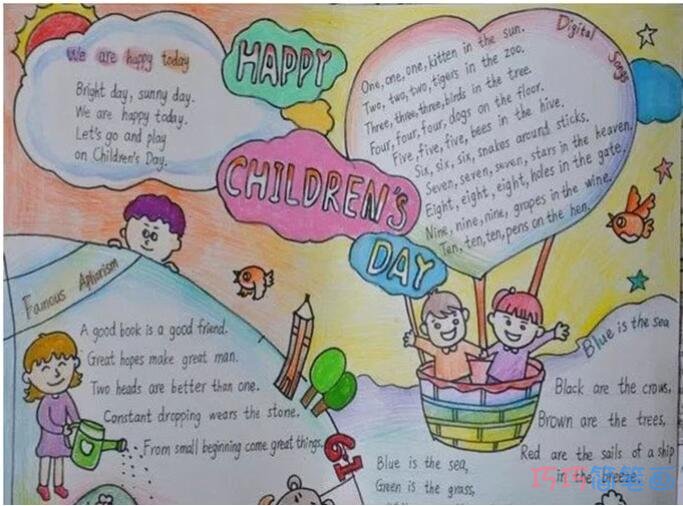 We are happy today
Bright day, sunny day.
We are happy today.
Let's go and play
on Children's Day.
HAPPY
CHILDREN'S
DAY
Digital Songs
One, one, one, kitten in the sun.
Two, two, two, tigers in the zoo.
Three, three, three, birds in the tree.
Four, four, four, dogs on the floor.
Five, five, five, bees in the hive.
Six, six, six, snakes around sticks.
Seven, seven, seven, stars in the heaven.
Eight, eight, eight, holes in the gate.
Nine, nine, nine, grapes in the wine.
Ten, ten, ten, pens on the hen.
Famous Aphorism
A good book is a good friend.
Great hopes make great man.
Two heads are better than one.
Constant dropping wears the stone.
From small beginning come great things.
61
Blue is the sea
Blue is the sea,
Green is the grass,
Black are the crows,
Brown are the trees,
Red are the sails of a ship
in the breeze.
巧巧简笔画